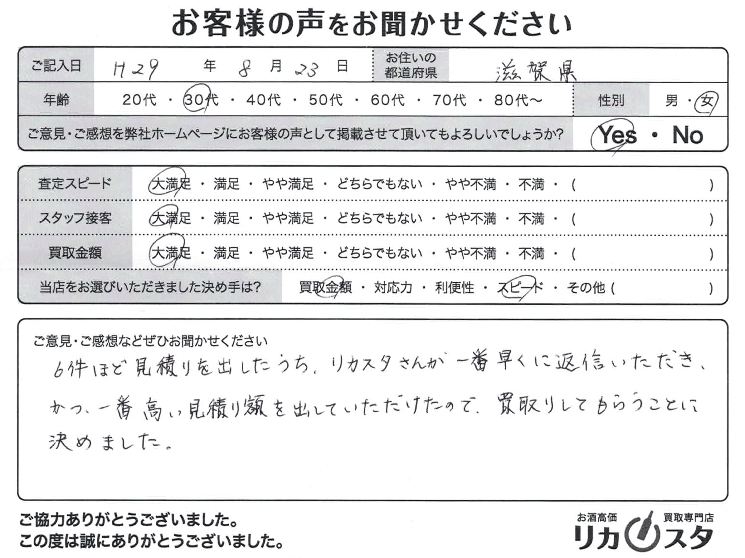 お客様の声をお聞かせください
ご記入日 H29 年 8 月 23 日 お住いの都道府県 滋賀県
年齢 20代・30代・40代・50代・60代・70代・80代～ 性別 男・女
ご意見・ご感想を弊社ホームページにお客様の声として掲載させて頂いてもよろしいでしょうか? Yes・No
査定スピード 大満足・満足・やや満足・どちらでもない・やや不満・不満・( )
スタッフ接客 大満足・満足・やや満足・どちらでもない・やや不満・不満・( )
買取金額 大満足・満足・やや満足・どちらでもない・やや不満・不満・( )
当店をお選びいただきました決め手は? 買取金額・対応力・利便性・スピード・その他( )
ご意見・ご感想などぜひお聞かせください
6件ほど見積りを出したうち、リカスタさんが一番早くに返信いただき、
かつ、一番高い見積り額を出していただけたので、買取りしてもらうことに
決めました。
ご協力ありがとうございました。
この度は誠にありがとうございました。
お酒高価 買取専門店
リカスタ